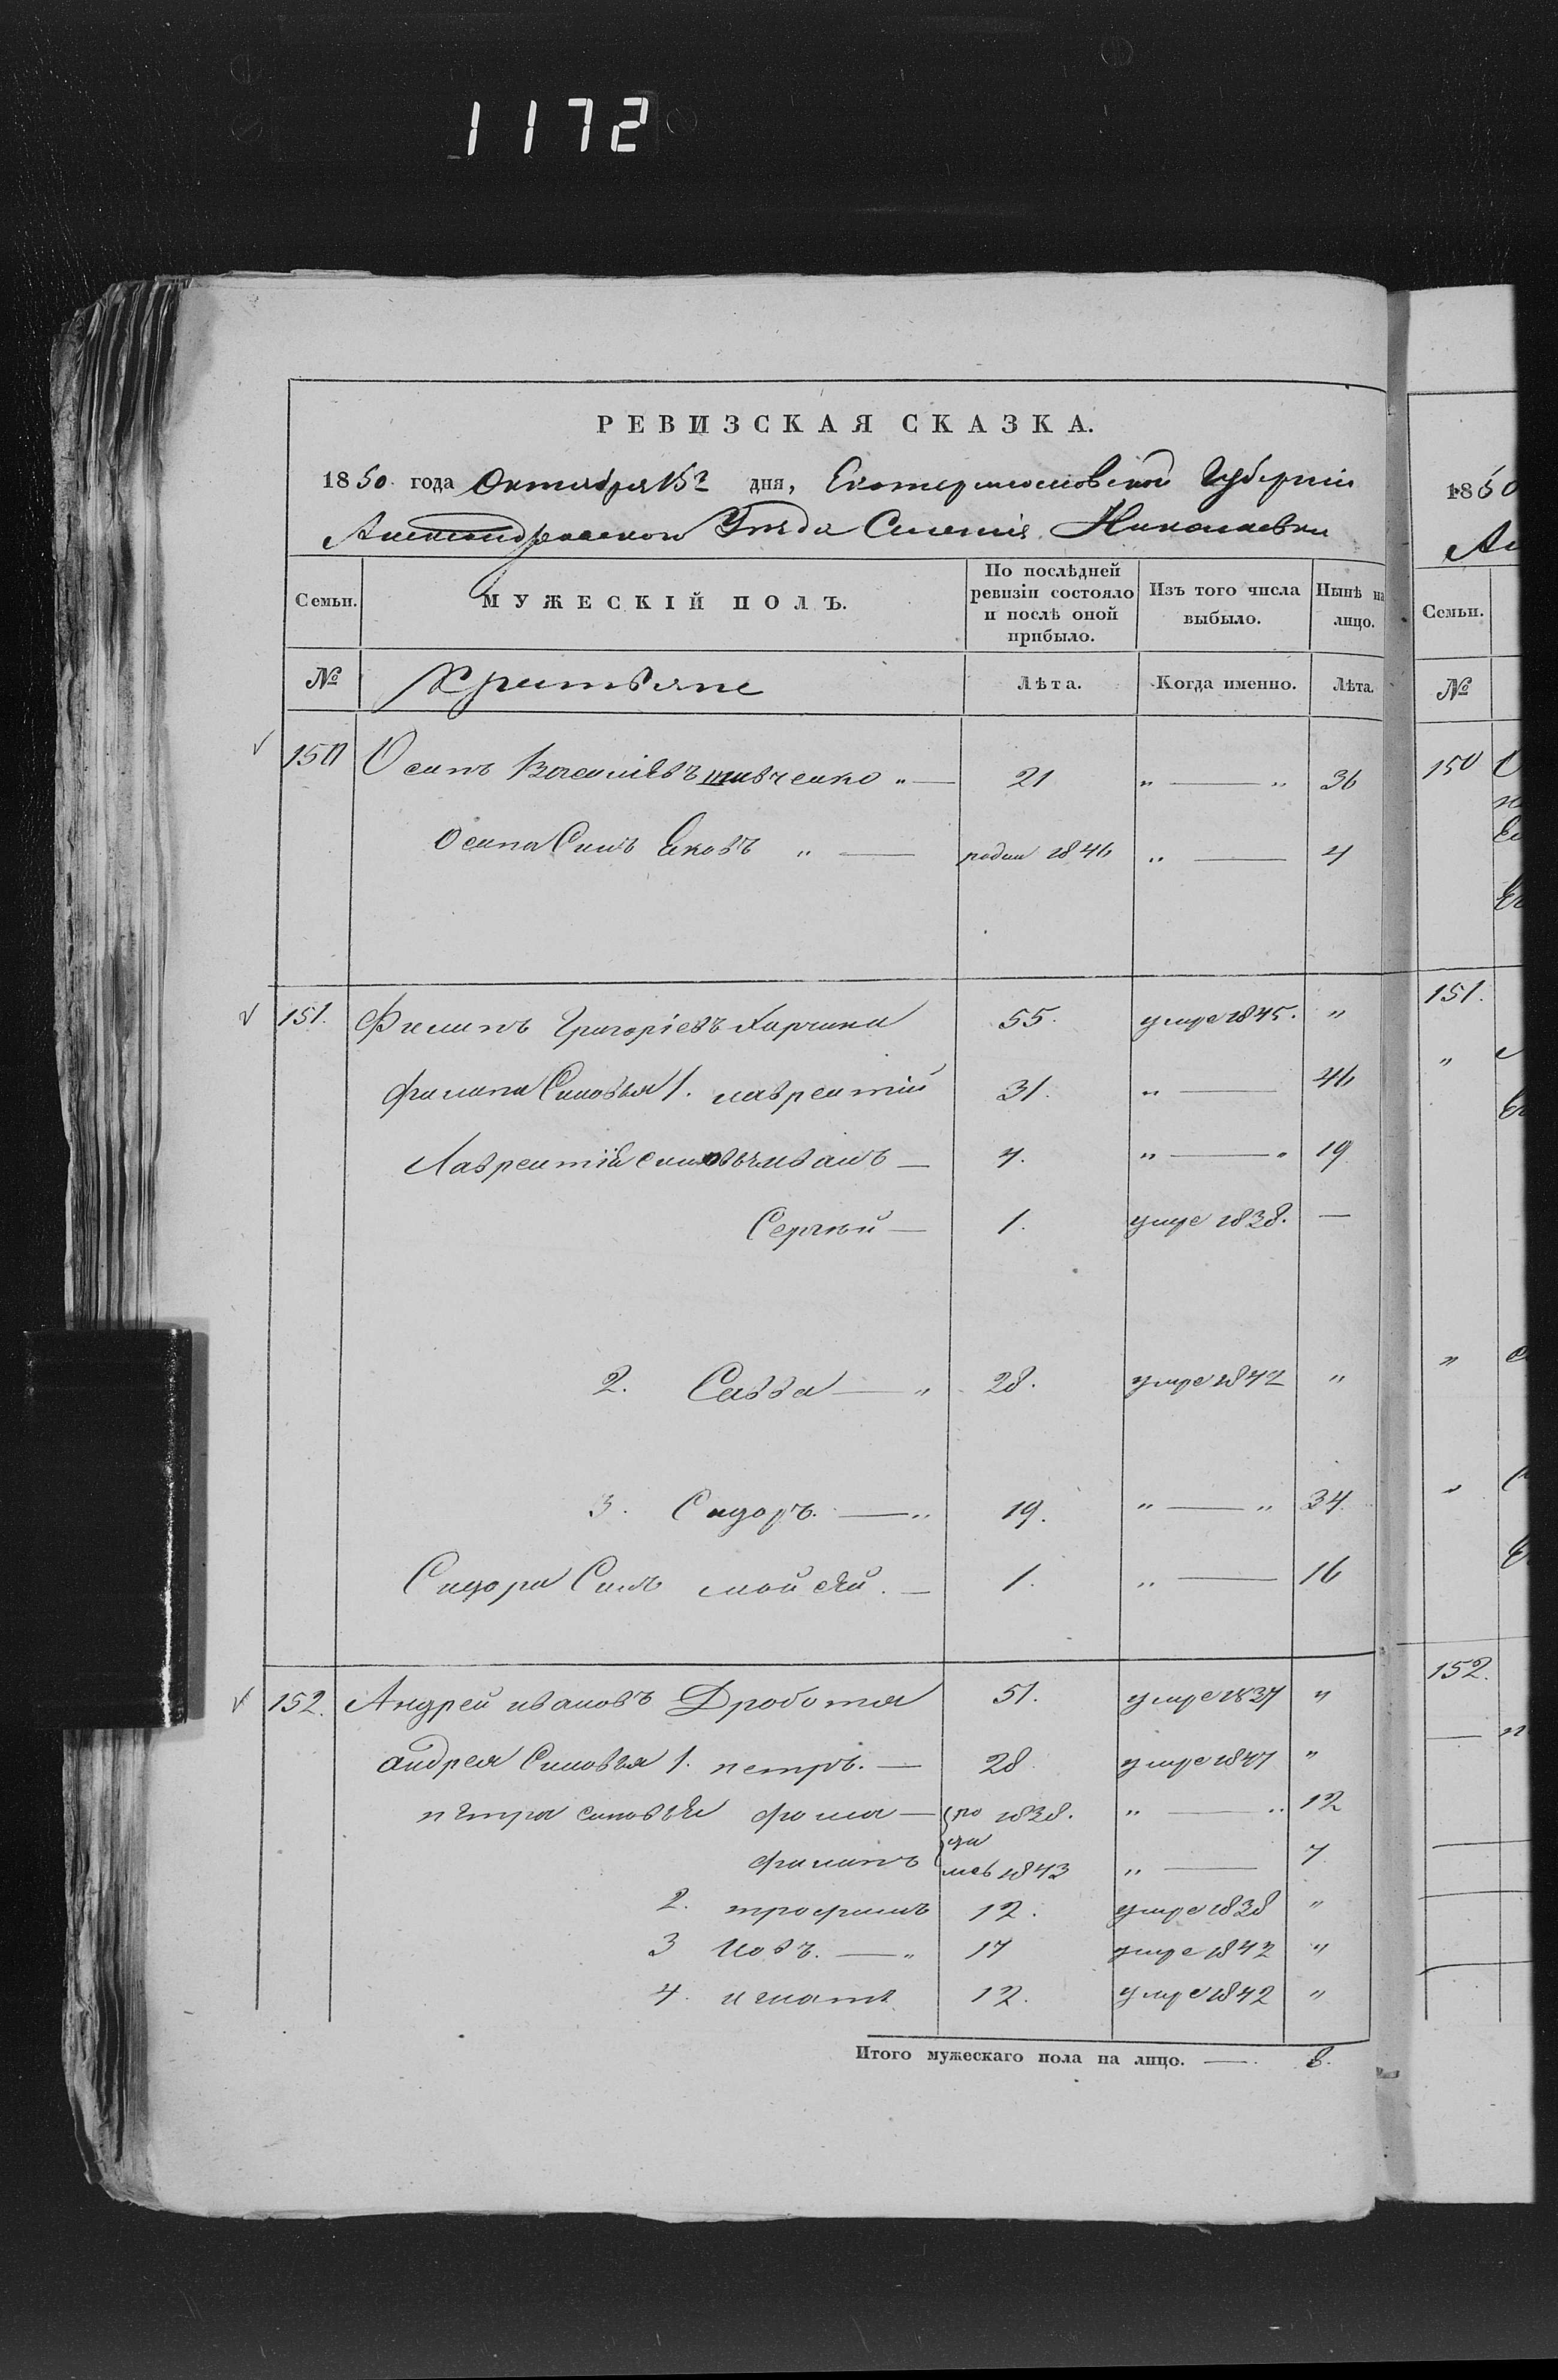 1172
РЕВИЗСКАЯ СКАЗКА.
1850 года Октября 15го дня, Екатеринославской Губерніи
Александровского Уезда Селенія Николаевки
Семьи. МУЖЕСКІЙ ПОЛЪ. По послѣдней ревизіи состояло и послѣ оной прибыло. Изъ того числа выбыло. Нынѣ на лицо.
№ Хрестьяне Лѣта. Когда именно. Лѣта.
150 Осипъ Васильевъ шевченко „ — 21 „ — „ 36
Осипа Синъ Яковъ „ — родил 1846 „ — 4
151. Филипъ Григоріевъ Харчина 55. умре 1845. „
филипа Синовья 1. лаврентій 31. „ — 46
Лаврентія синовья иванъ — 4. „ — „ 19
Сергѣй — 1. умре 1838. —
2. Савва — „ 28. умре 1842 „
3. Сидоръ. — „ 19. „ — „ 34
Сидора Синъ мойсѣй. — 1. „ — 16
152. Андрей ивановъ Дроботя 51. умре 1837 „
андрея Синовья 1. петръ. — 28 умре 1847 „
петра синовья фома — ро 1838. „ — „ 12
ди
филипъ лев 1843 „ — 7
2. трофимъ 12. умре 1838 „
3 Иовъ. — „ 17 умре 1842 „
4. игнатъ 12. умре 1842 „
Итого мужескаго пола на лицо. — 8.
1850
Семьи.
№
150
151.
„
„
152.